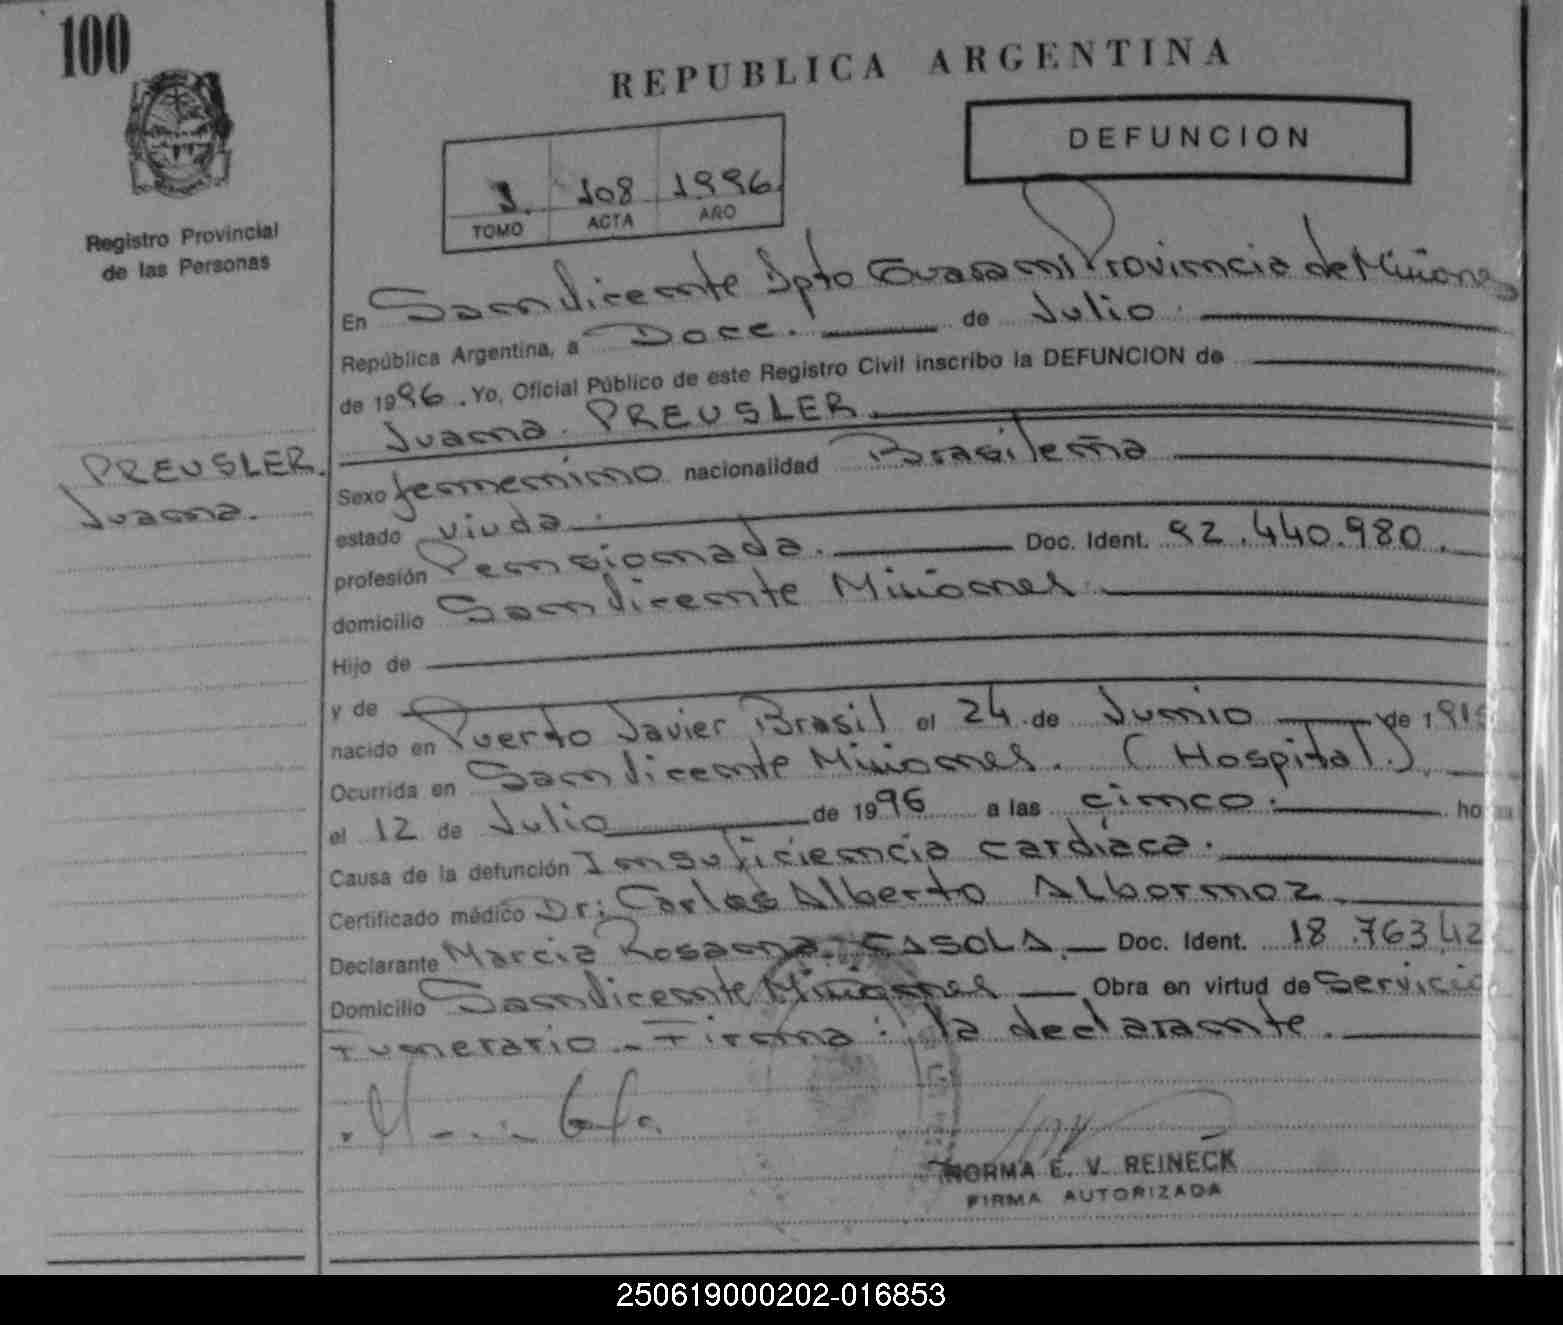 100
REPUBLICA ARGENTINA
DEFUNCION
1 108 1996
TOMO ACTA AÑO
Registro Provincial
de las Personas
En San Vicente Dpto Guaraní Provincia de Misiones
República Argentina, a Doce. de Julio
de 1996. Yo, Oficial Público de este Registro Civil inscribo la DEFUNCION de
Juana PREUSLER.
PREUSLER.
Juana.
Sexo femenino nacionalidad Brasileña
estado viuda
profesión Pensionada. Doc. Ident. 92.440.980.
domicilio San Vicente Misiones
Hijo de
y de
nacido en Puerto Javier Brasil el 24 de Junio de 191
Ocurrida en San Vicente Misiones. (Hospital).
el 12 de Julio de 1996 a las cinco. ho
Causa de la defunción Insuficiencia cardíaca.
Certificado médico Dr: Carlos Alberto ALBORNOZ
Declarante Marcia Rosana CASOLA. Doc. Ident. 18.763.42
Domicilio San Vicente Misiones Obra en virtud de Servicio
Funerario. Firma: la declarante.
NORMA E. V. REINECK
FIRMA AUTORIZADA
250619000202-016853